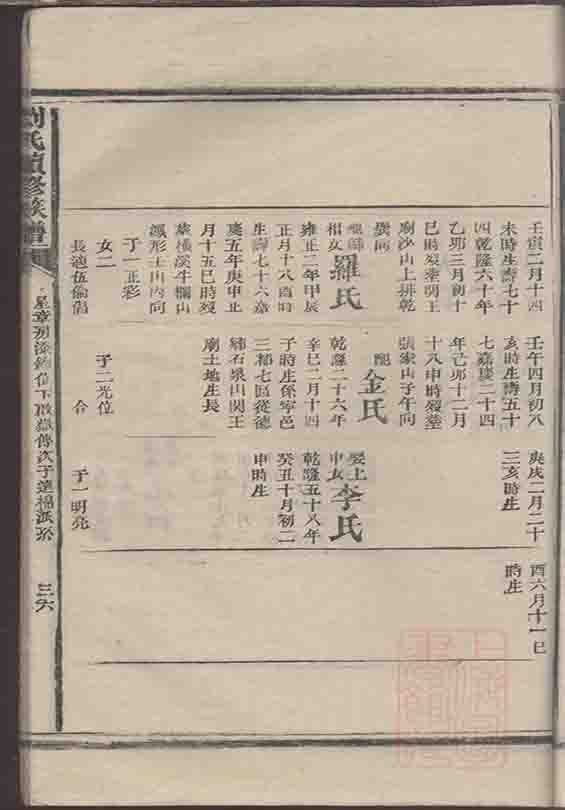 壬寅二月十四
未時生壽七十
四乾隆六十年
乙卯三月初十
巳時歿塟
廟沙山上排乾
巽向
羅氏
雍正二年甲辰
正月十八酉時
生壽七十六嘉
慶五年庚申正
月十五巳時歿
塟橫溪牛欄山
鳳形壬山丙向
子一正彩
女二
長適伍倫
壬午四月初八
亥時生壽五十
七嘉慶二十四
年己卯十二月
十八申時歿塟
張家山子午向
配金氏
乾隆二十六年
辛巳二月十四
子時生係寧邑
三都七區從德
鋪石泉山關王
廟土地生長
子二光位
合
庚戌二月二十
三亥時生
娶上
申女李氏
乾隆五十八年
癸丑十月初二
申時生
子一明亮
酉六月十一巳
時生
劉氏續修族譜
三六